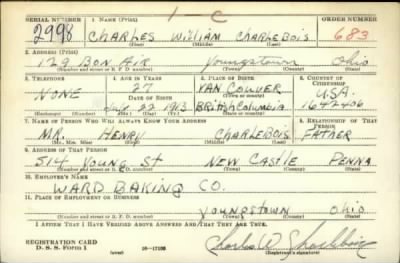 1-C
SERIAL NUMBER 1. NAME (Print) ORDER NUMBER
2998 CHARLES WILLIAM CHARLEBOIS 683
(First) (Middle) (Last)
2. ADDRESS (Print)
129 BON AIR Youngstown Ohio
(Number and street or R. F. D. number) (Town) (County) (State)
3. TELEPHONE 4. AGE IN YEARS 5. PLACE OF BIRTH 6. COUNTRY OF CITIZENSHIP
27 VANCOUVER U.S.A.
NONE DATE OF BIRTH (Town or county)
July 22 1913 British Columbia 1642406
(Exchange) (Number) (Mo.) (Day) (Yr.) (State or country)
7. NAME OF PERSON WHO WILL ALWAYS KNOW YOUR ADDRESS 8. RELATIONSHIP OF THAT PERSON
MR. HENRY CHARLEBOIS FATHER
(Mr., Mrs., Miss) (First) (Middle) (Last)
9. ADDRESS OF THAT PERSON
514 YOUNG St NEW CASTLE PENNA
(Number and street or R. F. D. number) (Town) (County) (State)
10. EMPLOYER'S NAME
WARD BAKING CO.
11. PLACE OF EMPLOYMENT OR BUSINESS
YOUNGSTOWN Ohio
(Number and street or R. F. D. number) (Town) (County) (State)
I AFFIRM THAT I HAVE VERIFIED ABOVE ANSWERS AND THAT THEY ARE TRUE.
REGISTRATION CARD
D. S. S. Form 1 (over) 16-17105 Charles W Charlebois
(Registrant's signature)